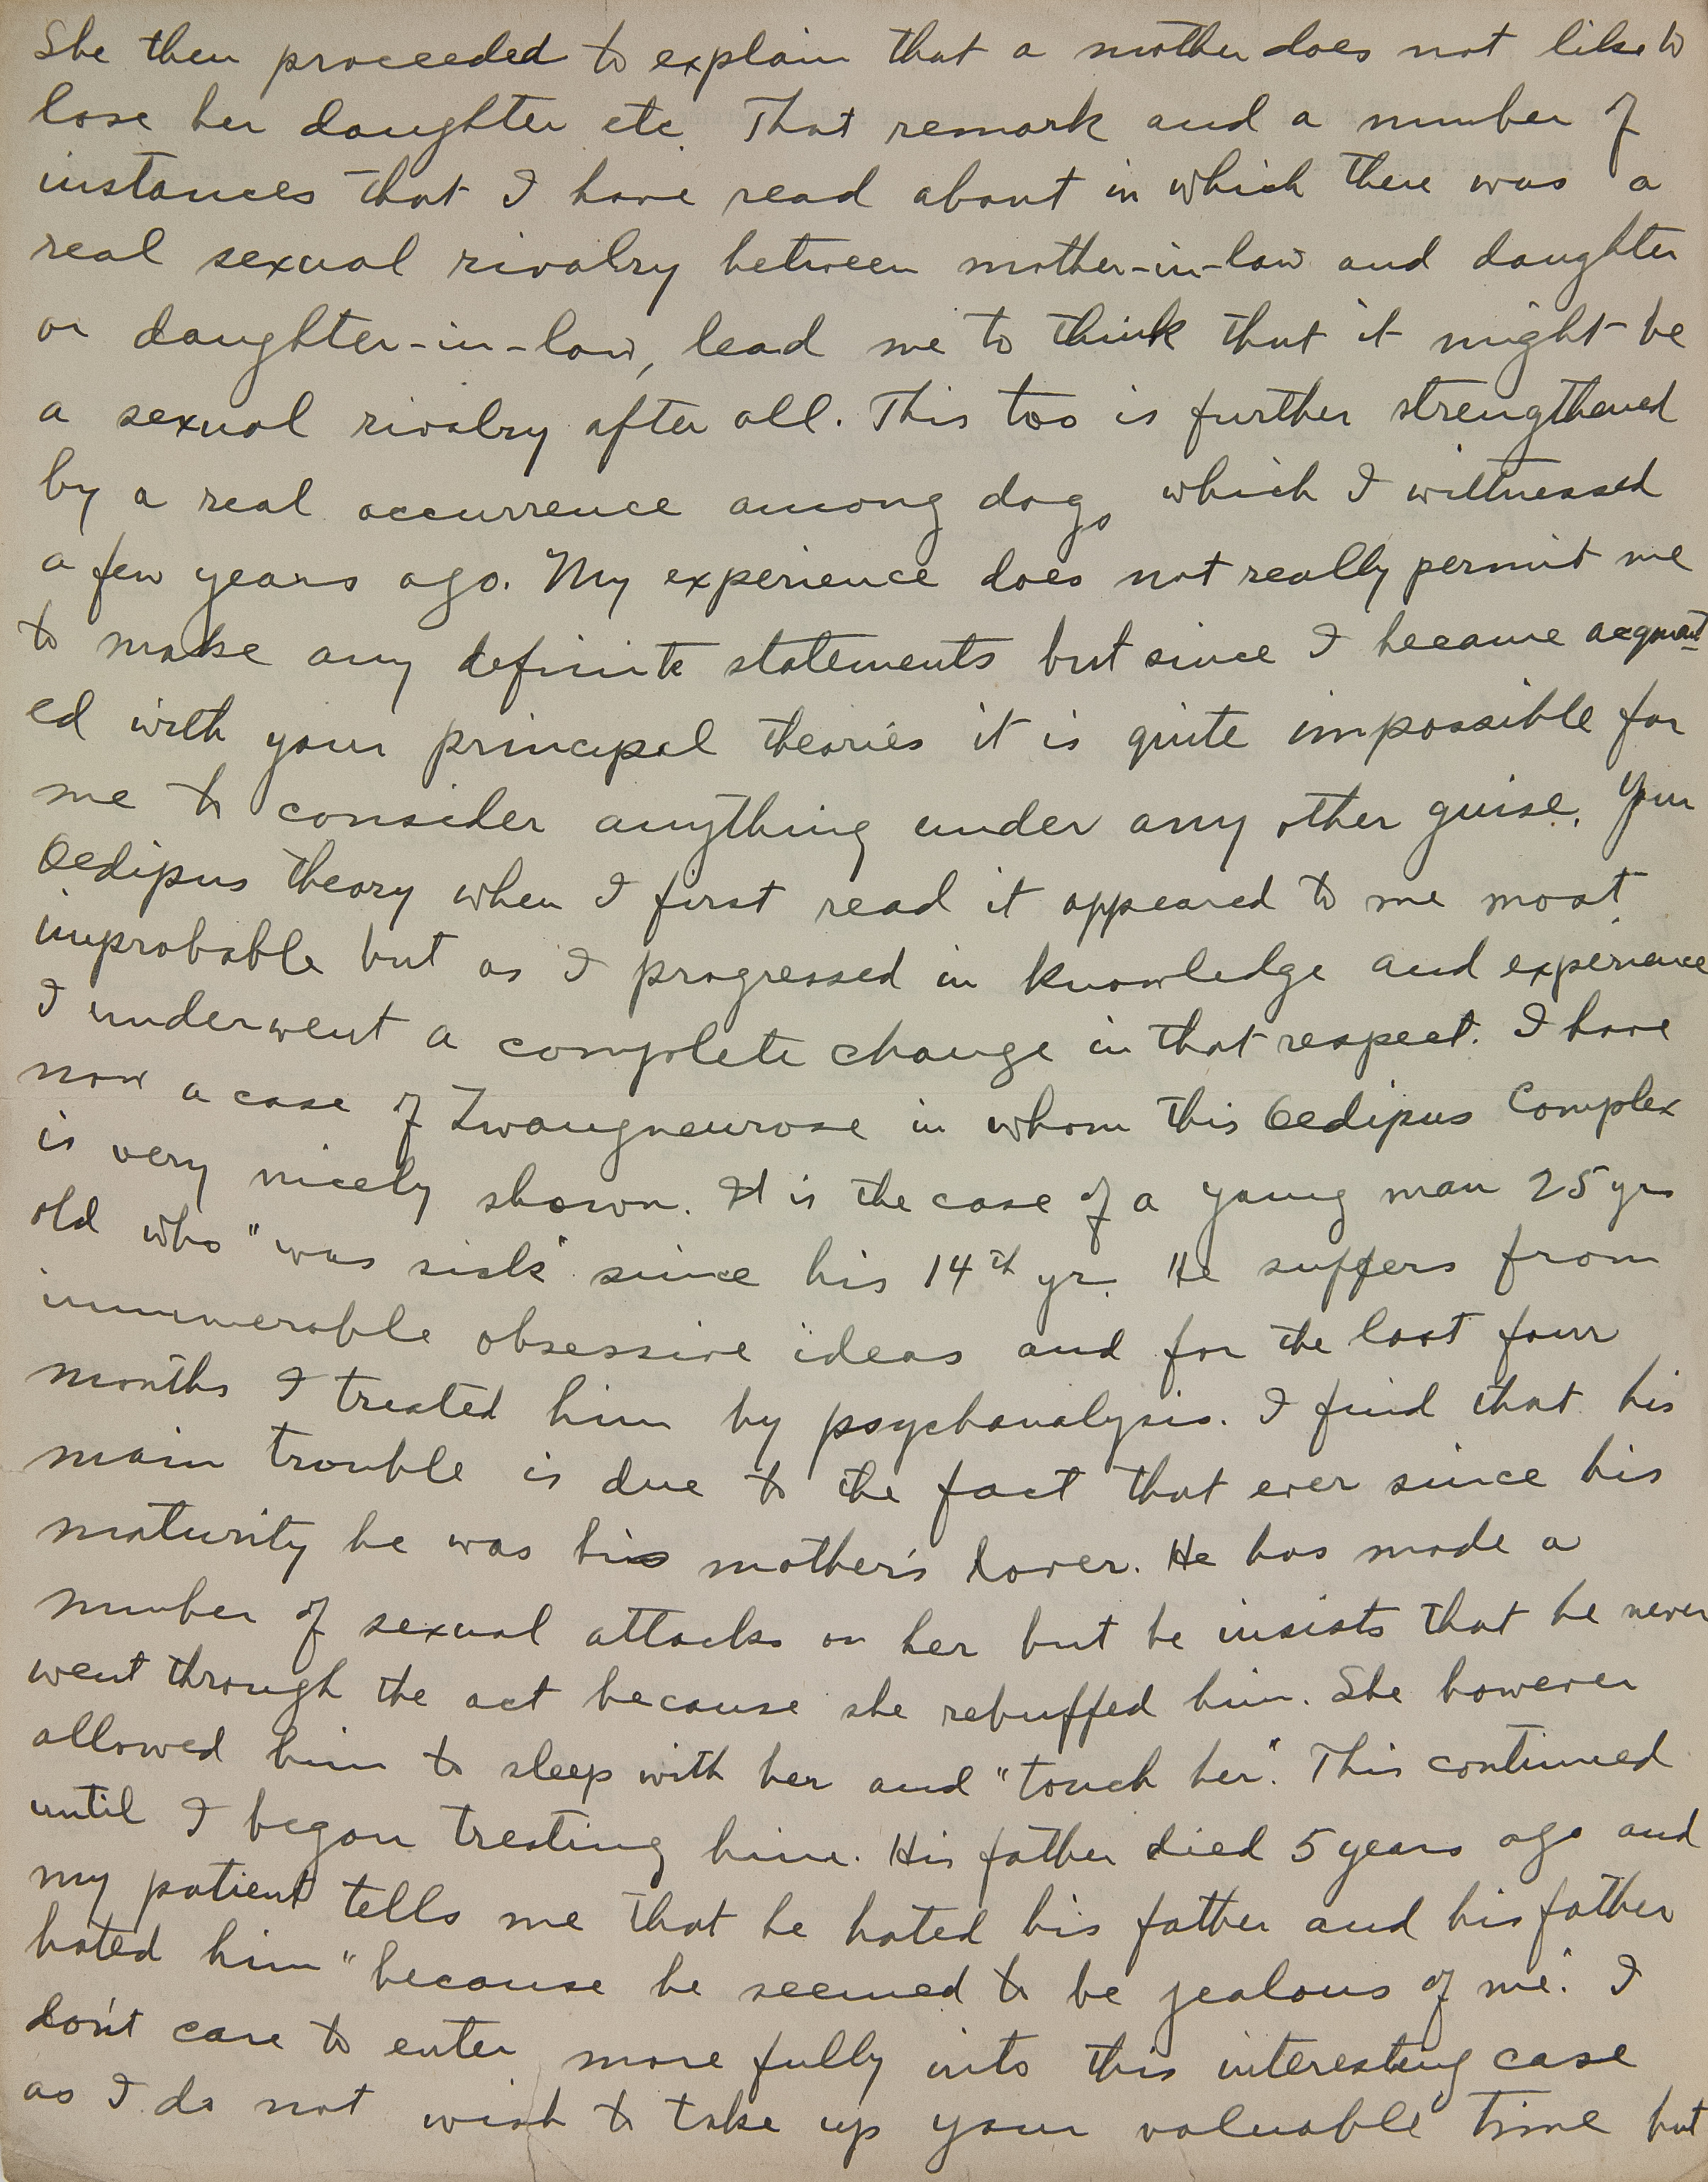 She then proceeded to explain that a mother does not like to
lose her daughter etc. That remark and a number of
instances that I have read about in which there was a
real sexual rivalry between mother-in-law and daughter
or daughter-in-law, lead me to think that it might be
a sexual rivalry after all. This too is further strengthened
by a real occurrence among dogs which I wittnessed
a few years ago. My experience does not really permit me
to make any definite statements but since I became acquaint
ed with your principal theories it is quite impossible for
me to consider anything under any other guise. Your
Oedipus theory when I first read it appeared to me most
improbable but as I progressed in knowledge and experience
I underwent a complete change in that respect. I have
now a case of Zwangneurose in whom this Oedipus Complex
is very nicely shown. It is the case of a young man 25 yrs
old who "was sick" since his 14th yr. He suffers from
innumerable obsessive ideas and for the last four
months I treated him by psychanalysis. I find that his
main trouble is due to the fact that ever since his
maturity he was his mother's lover. He has made a
number of sexual attacks on her but he insists that he never
went through the act because she rebuffed him. She however
allowed him to sleep with her and "touch her". This continued
until I began treating him. His father died 5 years ago and
my patient tells me that he hated his father and his father
hated him "because he seemed to be jealous of me." I
don't care to enter more fully into this interesting case
as I do not wish to take up your valuable time but